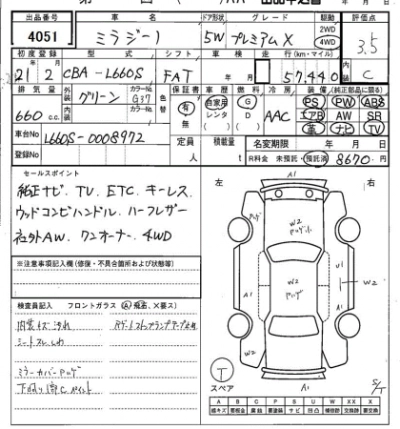 出品番号 車名 ドア形状 グレード 駆動 評価点
4051 ミラジーノ 5W プレミアムX 2WD 4WD 3.5
初度登録 型式 シフト 車検 走行(km・マイル) 内装
21 2 CBA-L660S FAT 年 月 57,440 C
排気量 外装色 カラーNo. 色替 保証書 車歴 燃料 冷房 装備(純正部品に限る)
660 cc グリーン G37 有 無 自家用 レンタ G D AAC PS PW ABS
エアB AW SR
革 ナビ TV
車台No. L660S-0008972 定員 人 積載量 t 名変期限 年 月 日
登録No. R料金 未預託・預託済 8670 円
セールスポイント
純正ナビ. TV. ETC. キーレス
ウッドコンビハンドル. ハーフレザー
社外AW. ワンオーナー. 4WD
※注意事項記入欄(修復・不具合箇所および状態等)
検査員記入 フロントガラス (A飛石、X要ス)
内装キズ 汚れ
シートスレ しわ
ミラーカバー
下廻り
左 右
W2
W2
A1 A1
U1
W2
W2
A1 A1
T
スペア
S/T
A B C P S U W X XX
線キズ 要板金 腐蝕 要塗装 サビ 凹凸 補修跡 要交換 交換済